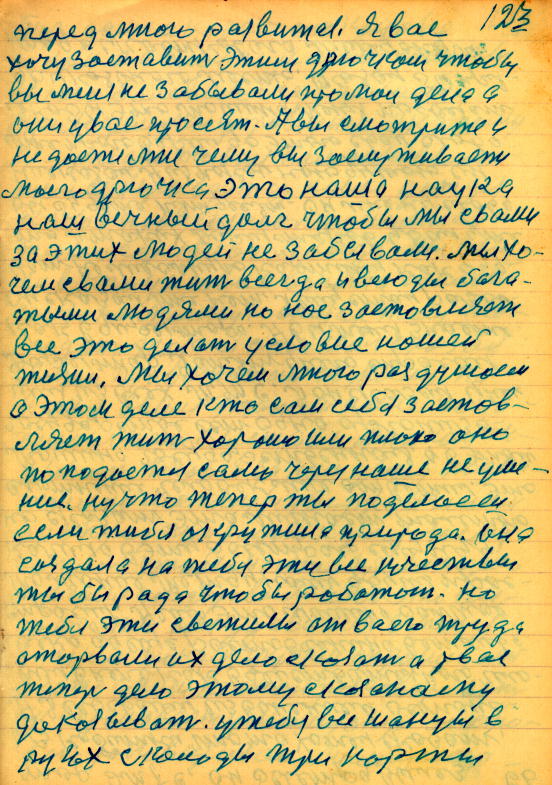 123
перед много развитая. Я вас
хочу заставить этим дрючком чтобы
вы меня не забывали про мои дела а
они у вас просят. А вы смотрите и
не даете мне чему вы заслуживаете
моего дрючка это наша наука
наш вечный долг чтобы мы с вами
за этих людей не забывали. Мы хо-
чем с вами жить всегда и всюды бага-
тыми людями но нас заставляют
все это делать условие нашей
жизни. Мы хочем много раз думаем
о этом деле кто сам себя застав-
ляет жить хорошо или плохо оно
поподается само через наше не уме-
ние. ну что тепер ты поделаеш
если тибя окружила природа. Она
создала на тебя эти все качествы
ты бы рада чтобы работат. но
тебя эти светилы от васего труда
оторвали их дело сказат а твае
тепер дело этому сказаному
доказыват. у тебя все шансы в
руках с колоды три карты